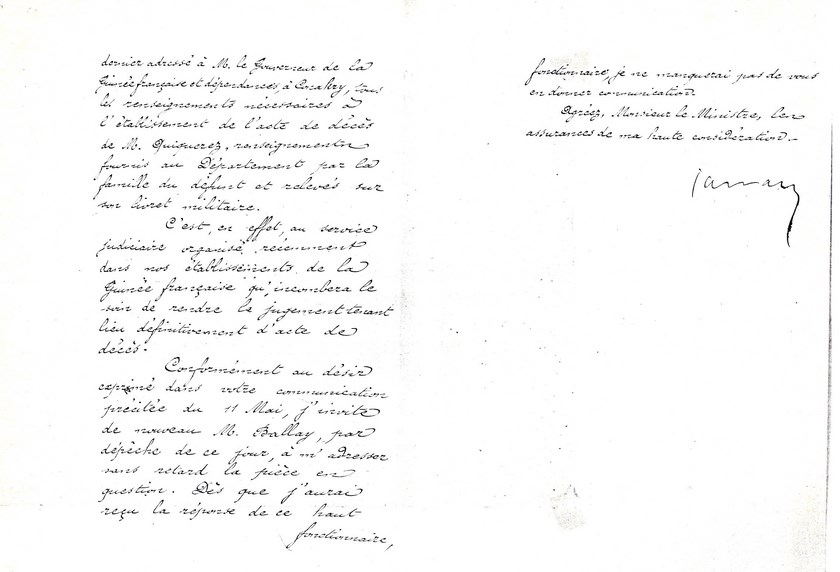 dernier adressé à M. le Gouverneur de la
Guinée française et dépendances, à Conakry, tous
les renseignements nécessaires à
l'établissement de l'acte de décès
de M. Quiquerez, renseignements
fournis au Département par la
famille du défunt et relevés sur
son livret militaire.
C'est, en effet, au service
judiciaire organisé récemment
dans nos établissements de la
Guinée française qu'incombera le
soin de rendre le jugement tenant
lieu définitivement d'acte de
décès.
Conformément au désir
exprimé dans votre communication
précitée du 11 Mai, j'invite
de nouveau M. Ballay, par
dépêche de ce jour, à m'adresser
sans retard la pièce en
question. Dès que j'aurai
reçu la réponse de ce haut
fonctionnaire,
fonctionnaire, je ne manquerai pas de vous
en donner communication.
Agréez, Monsieur le Ministre, les
assurances de ma haute considération.